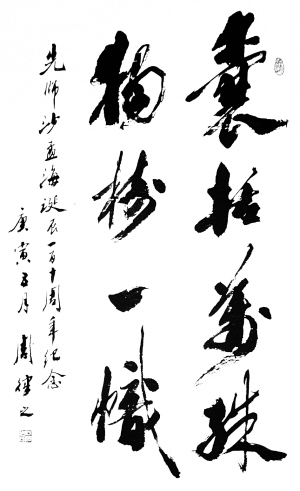 囊括万殊
独树一帜
先师沙孟海诞辰一百十周年纪念
庚寅五月 周律之